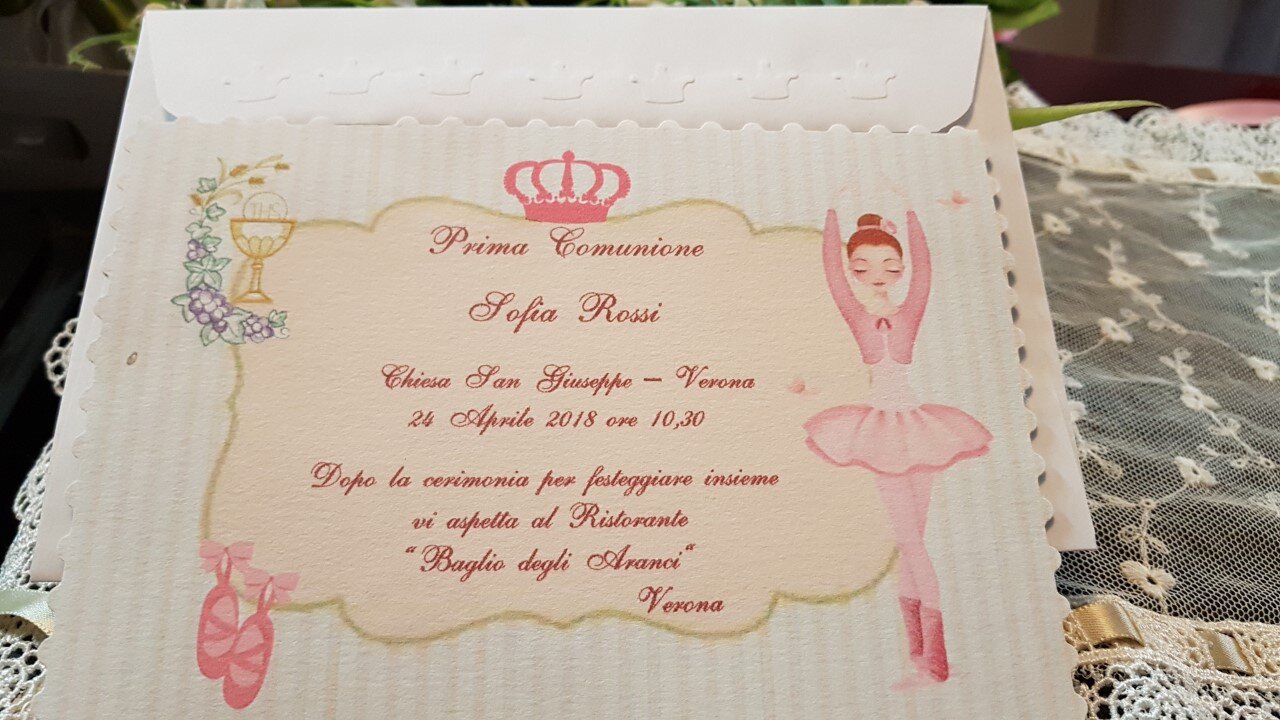 IHS
Prima Comunione
Sofia Rossi
Chiesa San Giuseppe – Verona
24 Aprile 2018 ore 10,30
Dopo la cerimonia per festeggiare insieme
vi aspetta al Ristorante
“Baglio degli Aranci“
Verona